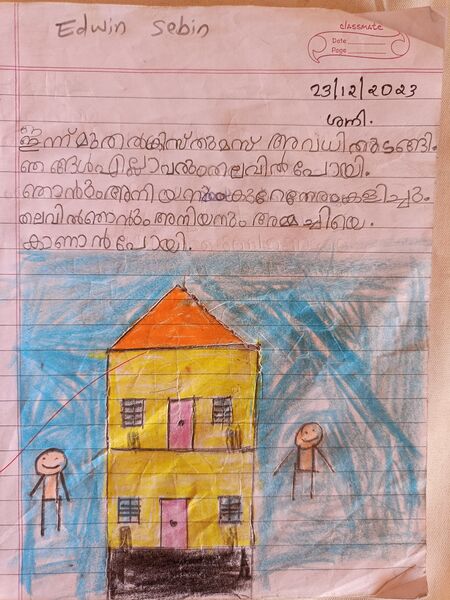 Edwin Sebin
classmate
Date
Page
23/12/2023
ശനി.
ഇന്ന് മുതൽ ക്രിസ്തുമസ് അവധി തുടങ്ങി.
ഞങ്ങൾ എല്ലാവരും തലവിൽ പോയി.
ഞാൻും അനിയനും കുറെനേരം കളിച്ചു.
തലവിൽ ഞാൻും അനിയനും അമ്മച്ചിയെ.
കാണാൻ പോയി.